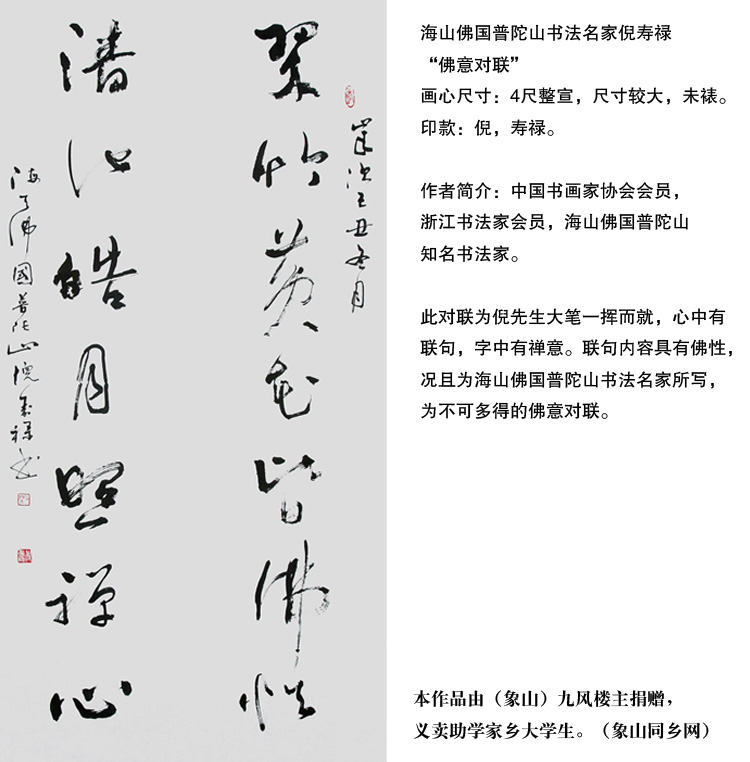 翠竹黄花皆佛性
池皓月照禪心
歲次己丑冬月
海天佛國普陀山倪壽祿書
海山佛国普陀山书法名家倪寿禄
“佛意对联”
画心尺寸：4尺整宣，尺寸较大，未裱。
印款：倪，寿禄。
作者简介：中国书画家协会会员，
浙江书法家会员，海山佛国普陀山
知名书法家。
此对联为倪先生大笔一挥而就，心中有
联句，字中有禅意。联句内容具有佛性，
况且为海山佛国普陀山书法名家所写，
为不可多得的佛意对联。
本作品由（象山）九风楼主捐赠，
义卖助学家乡大学生。（象山同乡网）